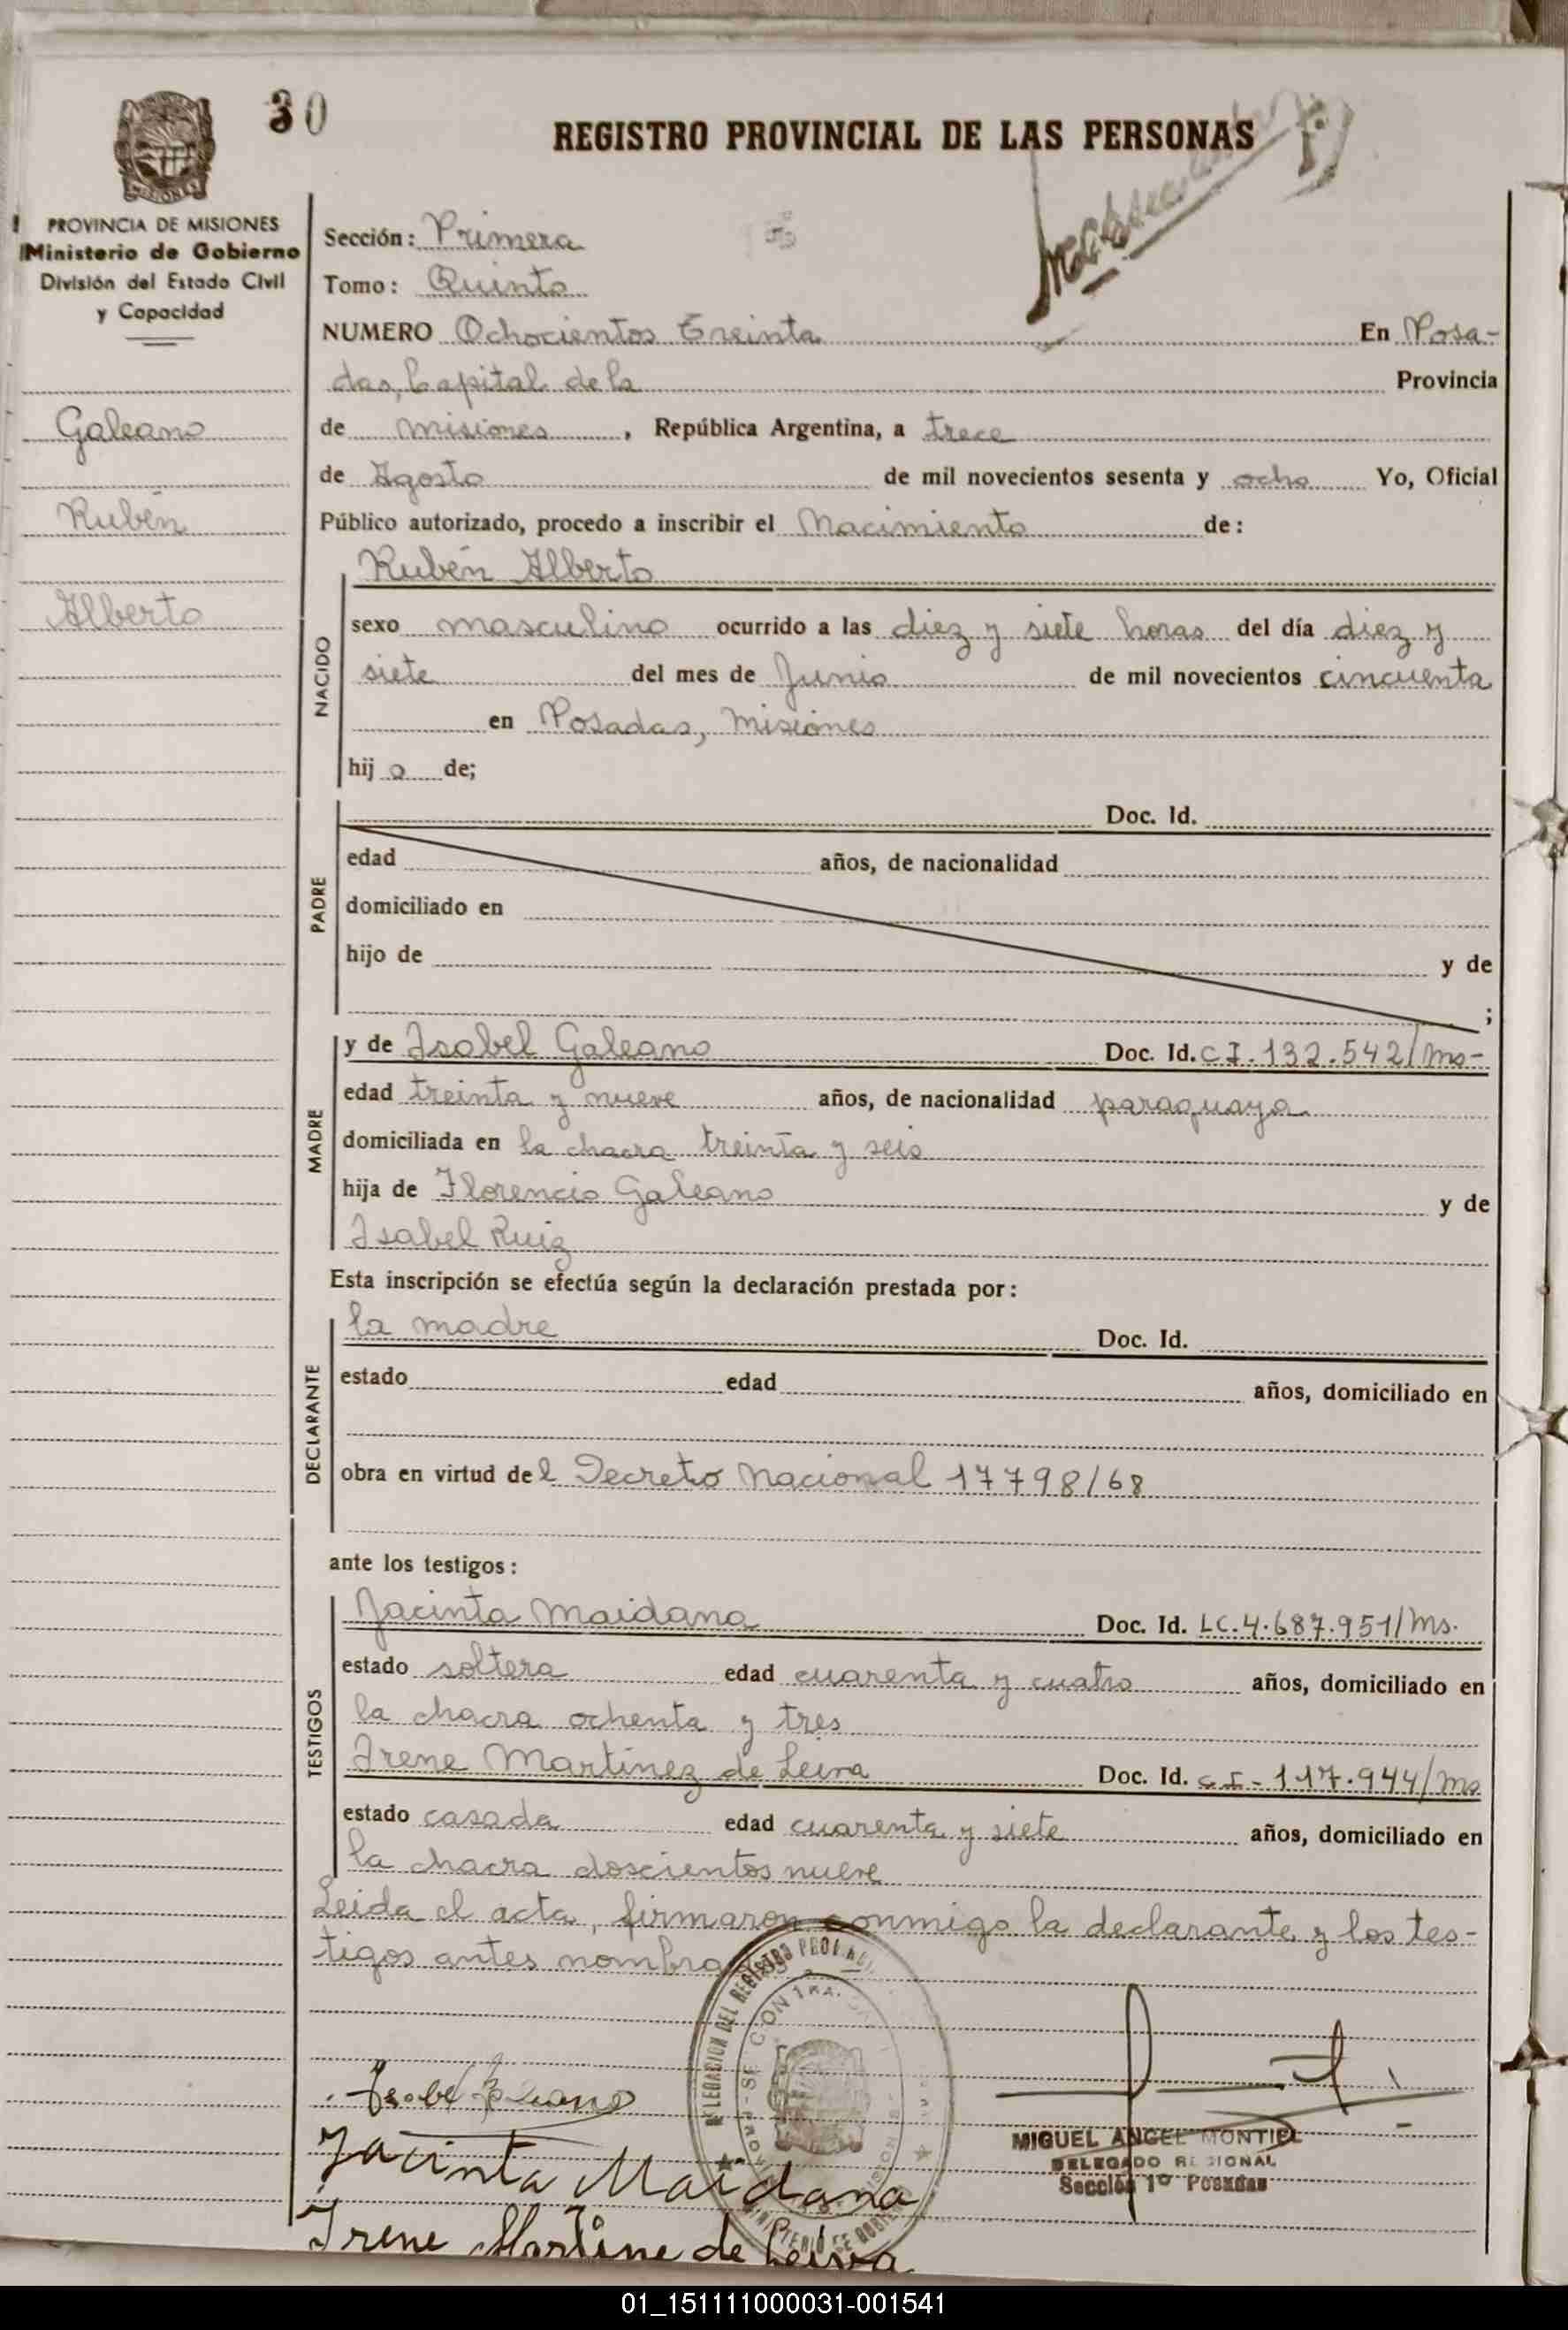 30
REGISTRO PROVINCIAL DE LAS PERSONAS
MISIONES
PROVINCIA DE MISIONES
Ministerio de Gobierno
División del Estado Civil
y Capacidad
Galeano
Rubén
Alberto
Sección: Primera
Tomo: Quinto
NUMERO Ochocientos Treinta En Posa-
das, Capital de la Provincia
de Misiones, República Argentina, a trece
de Agosto de mil novecientos sesenta y ocho Yo, Oficial
Público autorizado, procedo a inscribir el Nacimiento de:
Rubén Alberto
NACIDO
sexo masculino ocurrido a las diez y siete horas del día diez y
siete del mes de Junio de mil novecientos cincuenta
en Posadas, Misiones
hijo de;
PADRE
Doc. Id.
edad años, de nacionalidad
domiciliado en
hijo de y de
;
MADRE
y de Isabel Galeano Doc. Id. CI. 132.542/Ms-
edad treinta y nueve años, de nacionalidad paraguaya
domiciliada en la chacra treinta y seis
hija de Florencio Galeano y de
Isabel Ruiz
Esta inscripción se efectúa según la declaración prestada por:
DECLARANTE
la madre Doc. Id.
estado edad años, domiciliado en
obra en virtud del Decreto Nacional 17798/68
ante los testigos:
TESTIGOS
Jacinta Maidana Doc. Id. LC. 4.687.951/Ms.
estado soltera edad cuarenta y cuatro años, domiciliado en
la chacra ochenta y tres
Irene Martínez de Leiva Doc. Id. CI- 117.944/Ms
estado casada edad cuarenta y siete años, domiciliado en
la chacra doscientos nueve
Leida el acta, firmaron conmigo la declarante y los tes-
tigos antes nombra
DELEGACION DEL REGISTRO
MINISTERIO DE
Isabel Galeano
Jacinta Maidana
Irene Martine de Leiva
MIGUEL ANGEL MONTIEL
DELEGADO REGIONAL
Sección 1º Posadas
01_151111000031-001541